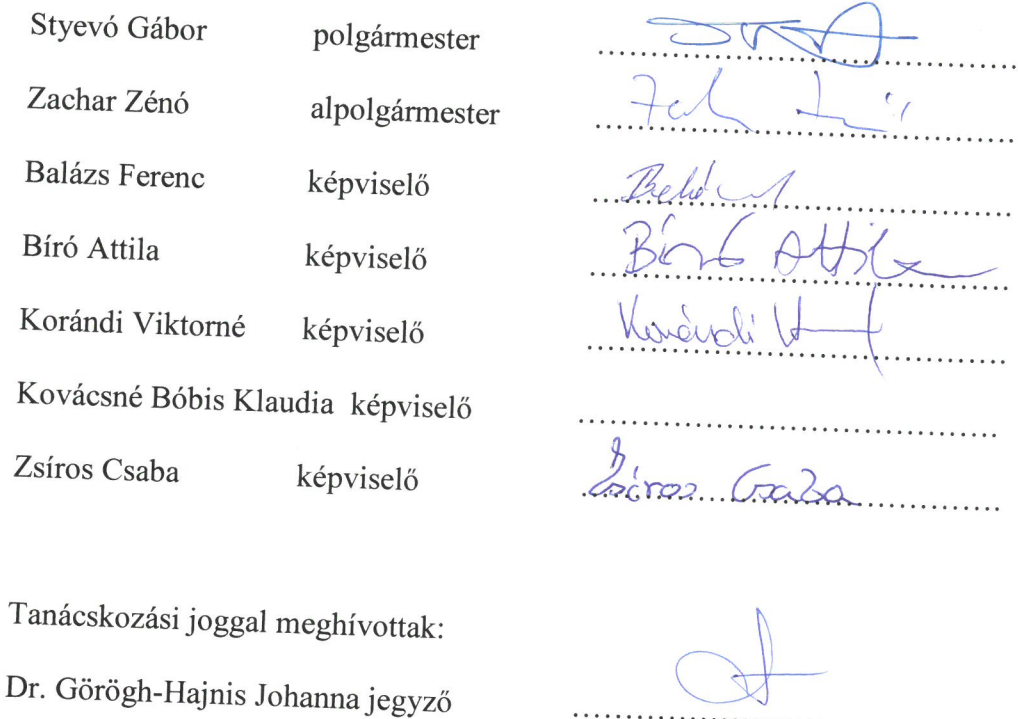 Styevó Gábor polgármester
Zachar Zénó alpolgármester
Balázs Ferenc képviselő
Bíró Attila képviselő Bíró Attila
Korándi Viktorné képviselő Korándi
Kovácsné Bóbis Klaudia képviselő
Zsíros Csaba képviselő Zsíros Csaba
Tanácskozási joggal meghívottak:
Dr. Görögh-Hajnis Johanna jegyző